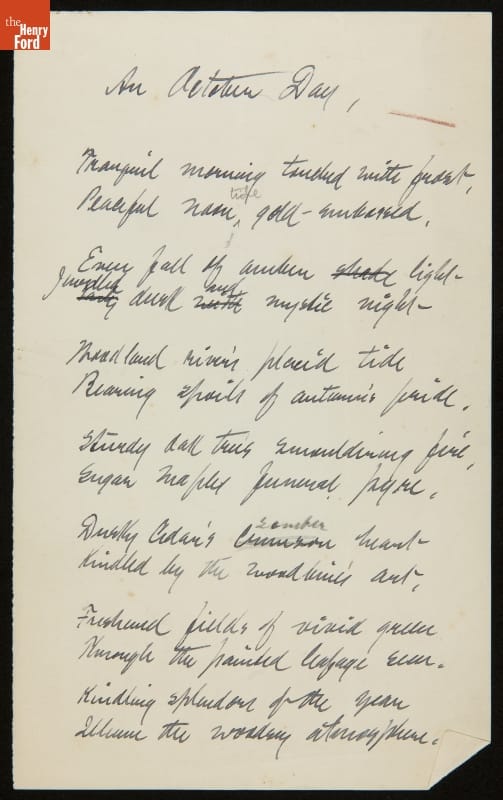 the
Henry
Ford
An October Day,
Tranquil morning touched with frost,
Peaceful noon tide gold-embossed,
Every fall of amber shade light-
Jewelled early dusk and with mystic night-
Woodland river's placid tide
Bearing spoils of autumn's pride,
Sturdy Oak tree's smouldering fire,
Sugar Maple's funeral pyre,
Dusky Cedar's crimson somber heart
Kindled by the woodbine's art,
Freshened fields of vivid green
Through the painted leafage seen.
Kindling splendors of the year
Illume the woodsy atmosphere.